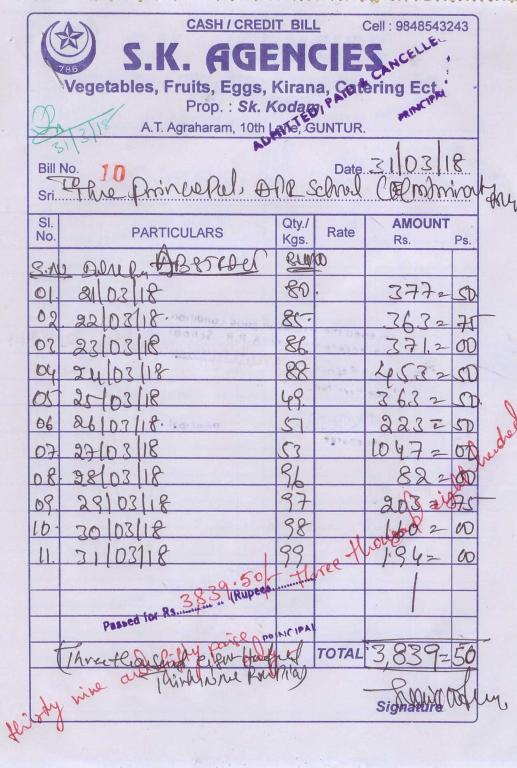 CASH / CREDIT BILL Cell : 9848543243
786
S.K. AGENCIES
Vegetables, Fruits, Eggs, Kirana, Catering Ect.
Prop. : Sk. Kodam
A.T. Agraharam, 10th Lane, GUNTUR.
ADMITTED, PAID & CANCELLED
PRINCIPAL
31/3/18
Bill No. 10 Date 31/03/18
Sri To The principal, APR School
Sl. No. PARTICULARS Qty./ Kgs. Rate AMOUNT Rs. Ps.
S.No Abstract
01. 21/03/18 80. 377=50
02. 22/03/18. 85. 363=75
03 23/03/18 86 371=00
04 24/03/18 88 453=50
05 25/03/18 49. 363=50.
06 26/03/18. 51 223=50
07. 27/03/18 53 1047=00
08. 28/03/18 96 82=00
09. 29/03/18 97 203=75
10. 30/03/18 98 160=00
11. 31/03/18 99 194=00
Passed for Rs. 3839.50/- (Rupees three thousand eight hundred
thirty nine and fifty paise
PRINCIPAL
TOTAL 3,839=50
Signature